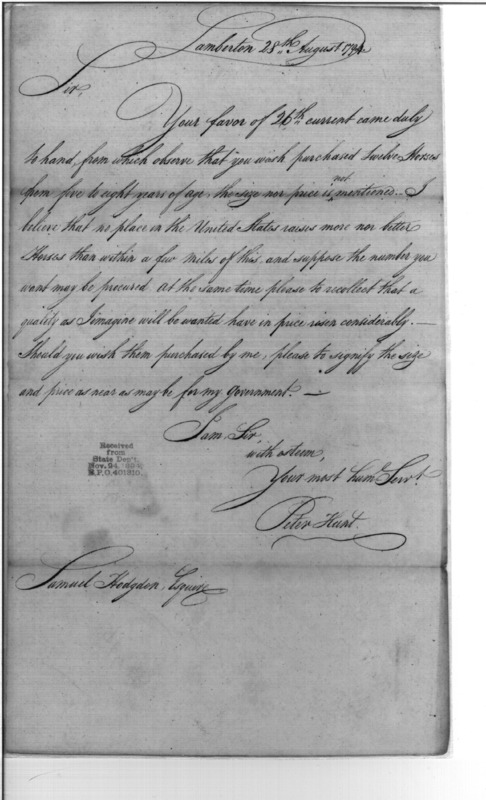 Lamberton 28th August 1794
Sir,
Your favor of 26th current came duly
to hand, from which observe that you wish purchased twelve Horses
from five to eight years of age, the size nor price is not mentioned. I
believe that no place in the United States raises more nor better
Horses than within a few miles of this, and suppose the number you
want may be procured at the same time please to recollect that a
quality as I imagine will be wanted have in price risen considerably. —
Should you wish them purchased by me, please to signify the size
and price as near as may be for my Government. —
I am Sir,
with esteem,
Your most humle Servt.
Peter Hunt.
Received
from
State Dep't.
Nov. 24,
R.P.O. 401810.
Samuel Hodgdon, Esquire